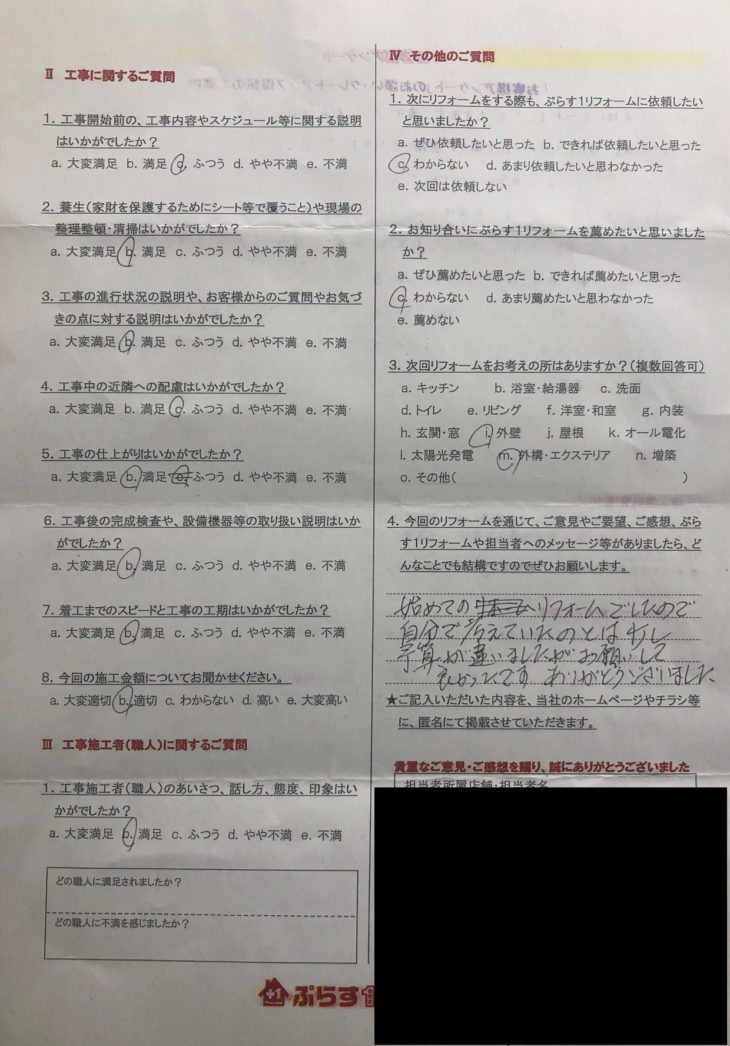 Ⅱ 工事に関するご質問
1. 工事開始前の、工事内容やスケジュール等に関する説明
はいかがでしたか？
a. 大変満足 b. 満足 c. ふつう d. やや不満 e. 不満
2. 養生(家財を保護するためにシート等で覆うこと)や現場の
整理整頓・清掃はいかがでしたか？
a. 大変満足 b. 満足 c. ふつう d. やや不満 e. 不満
3. 工事の進行状況の説明や、お客様からのご質問やお気づ
きの点に対する説明はいかがでしたか？
a. 大変満足 b. 満足 c. ふつう d. やや不満 e. 不満
4. 工事中の近隣への配慮はいかがでしたか？
a. 大変満足 b. 満足 c. ふつう d. やや不満 e. 不満
5. 工事の仕上がりはいかがでしたか？
a. 大変満足 b. 満足 c. ふつう d. やや不満 e. 不満
6. 工事後の完成検査や、設備機器等の取り扱い説明はいか
がでしたか？
a. 大変満足 b. 満足 c. ふつう d. やや不満 e. 不満
7. 着工までのスピードと工事の工期はいかがでしたか？
a. 大変満足 b. 満足 c. ふつう d. やや不満 e. 不満
8. 今回の施工金額についてお聞かせください。
a. 大変適切 b. 適切 c. わからない d. 高い e. 大変高い
Ⅲ 工事施工者(職人)に関するご質問
1. 工事施工者(職人)のあいさつ、話し方、態度、印象はい
かがでしたか？
a. 大変満足 b. 満足 c. ふつう d. やや不満 e. 不満
どの職人に満足されましたか？
どの職人に不満を感じましたか？
Ⅳ その他のご質問
1. 次にリフォームをする際も、ぷらす1リフォームに依頼したい
と思いましたか？
a. ぜひ依頼したいと思った b. できれば依頼したいと思った
c. わからない d. あまり依頼したいと思わなかった
e. 次回は依頼しない
2. お知り合いにぷらす1リフォームを薦めたいと思いました
か？
a. ぜひ薦めたいと思った b. できれば薦めたいと思った
c. わからない d. あまり薦めたいと思わなかった
e. 薦めない
3. 次回リフォームをお考えの所はありますか？(複数回答可)
a. キッチン b. 浴室・給湯器 c. 洗面
d. トイレ e. リビング f. 洋室・和室 g. 内装
h. 玄関・窓 i. 外壁 j. 屋根 k. オール電化
l. 太陽光発電 m. 外構・エクステリア n. 増築
o. その他( )
4. 今回のリフォームを通じて、ご意見やご要望、ご感想、ぷら
す1リフォームや担当者へのメッセージ等がありましたら、ど
んなことでも結構ですのでぜひお願いします。
始めての リフォームでしたので
自分で考えていたのとは少し
予算が違いましたがお願いして
良かったです ありがとうございました
★ご記入いただいた内容を、当社のホームページやチラシ等
に、匿名にて掲載させていただきます。
貴重なご意見・ご感想を賜り、誠にありがとうございました
担当者所属店舗・担当者名
+1 ぷらす